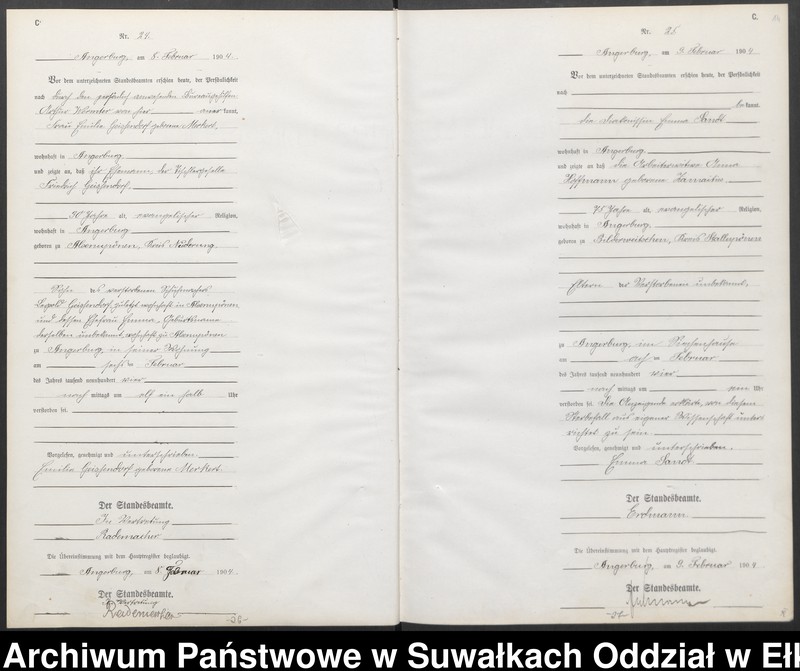 C
Nr. 24.
Angerburg, am 8. Februar 1904.
Vor dem unterzeichneten Standesbeamten erschien heute, der Persönlichkeit
nach durch den persönlich
kannt,
Frau Emilie Geissendorf geborene Merkert,
wohnhaft in Angerburg
und zeigte an, daß ihr Ehemann, der
Friedrich Geissendorf
50 Jahre alt, evangelischer Religion,
wohnhaft in Angerburg
geboren zu Kreis Niederung
Sohn des verstorbenen Schuhmachers
Leopold Geissendorf zuletzt wohnhaft in
und dessen Ehefrau Emma, Geburtsname
derselben unbekannt, wohnhaft zu
zu Angerburg, in seiner Wohnung
am sechsten Februar
des Jahres tausend neunhundert vier
nachmittags um elf ein halb Uhr
verstorben sei.
Vorgelesen, genehmigt und unterschrieben
Emilie Geissendorf geborene Merkert
Der Standesbeamte.
In Vertretung
Rademacher
Die Übereinstimmung mit dem Hauptregister beglaubigt.
Angerburg, am 8. Februar 1904.
Der Standesbeamte.
In Vertretung
Rademacher
C.
Nr. 25
Angerburg, am 9. Februar 1904
Vor dem unterzeichneten Standesbeamten erschien heute, der Persönlichkeit
nach
bekannt,
die Diakonissin Emma Sandt
wohnhaft in Angerburg
und zeigte an, daß die Arbeiterwitwe Anna
Hoffmann geborene
75 Jahre alt, evangelischer Religion,
wohnhaft in Angerburg
geboren zu Bilderweitschen, Kreis Stallupönen
Eltern der Verstorbenen unbekannt,
zu Angerburg, im Siechenhause
am achten Februar
des Jahres tausend neunhundert vier
nachmittags um Uhr
verstorben sei. Die Anzeigende erklärte, von diesem
Sterbefall aus eigener Wissenschaft unter-
richtet zu sein.
Vorgelesen, genehmigt und unterschrieben.
Emma Sandt
Der Standesbeamte.
Erdmann
Die Übereinstimmung mit dem Hauptregister beglaubigt.
Angerburg, am 9. Februar 1904
Der Standesbeamte.
Erdmann
Archiwum Państwowe w Suwałkach Oddział w Eł